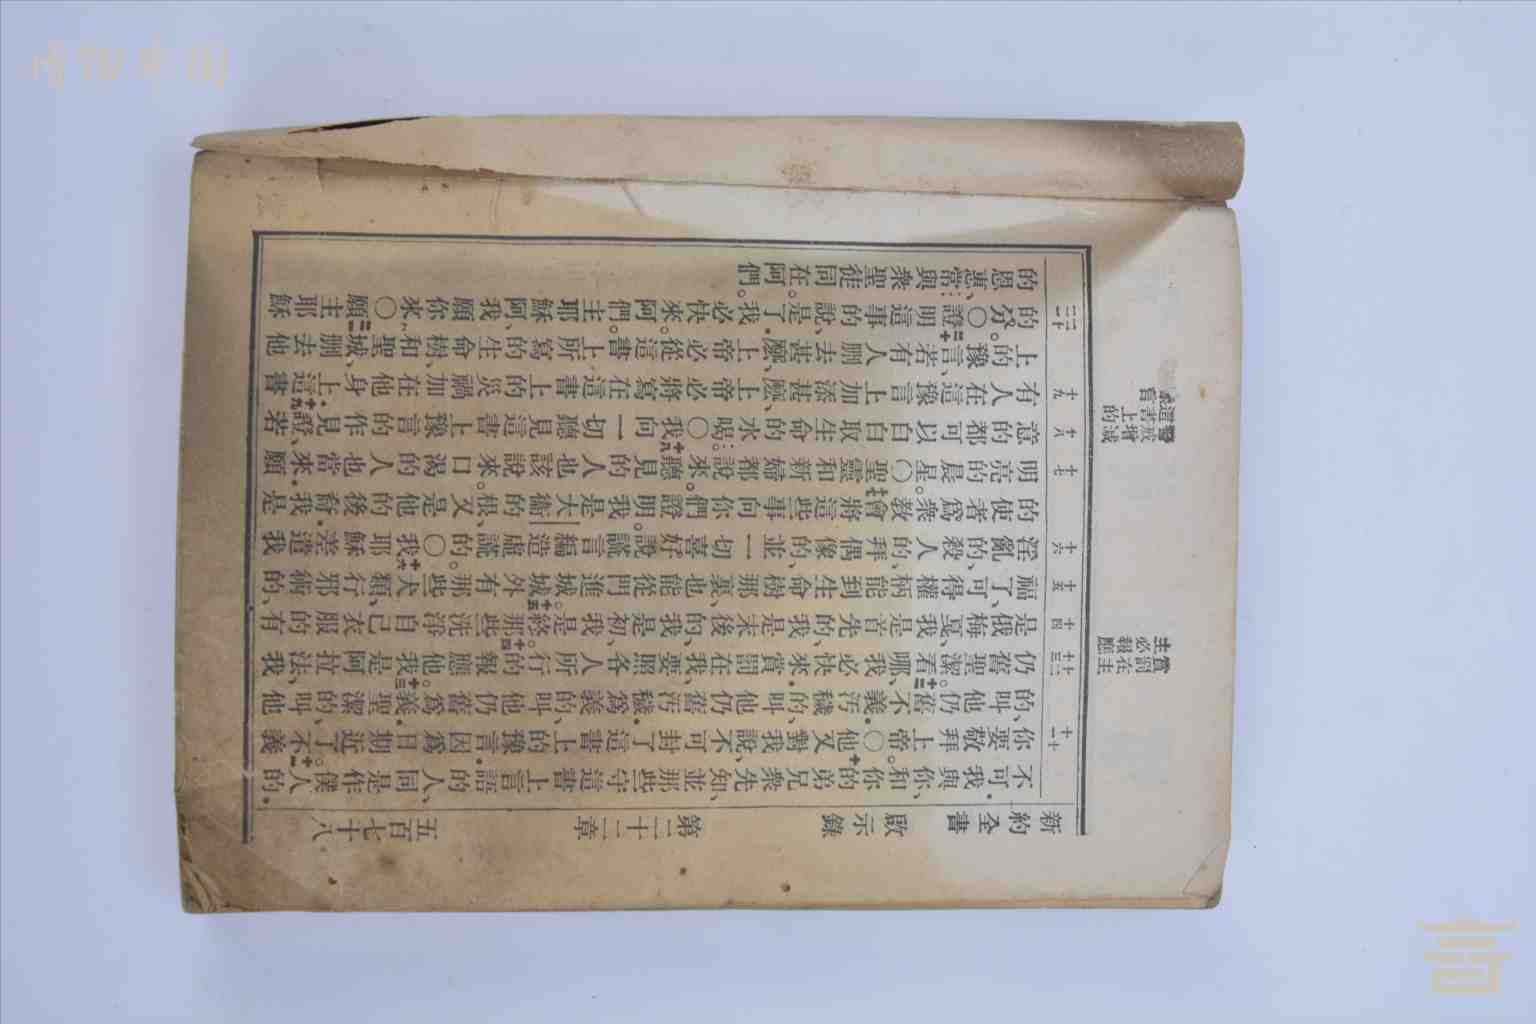 新約全書 啟示錄 第二十二章 五百七十八
不可.我與你、和你的弟兄衆先知、並那些守這書上言語的人、同是作僕人的.
你要敬拜上帝。○十他又對我說、不可封了這書上的豫言.因爲日期近了。十一不義
的、叫他仍舊不義.汚穢的、叫他仍舊汚穢.爲義的、叫他仍舊爲義.聖潔的、叫他
仍舊聖潔。十二看哪、我必快來.賞罰在我、要照各人所行的報應他。十三我是阿拉法、我
是俄梅戛、我是首先的、我是末後的、我是初、我是終。十四那些洗淨自己衣服的、有
福了、可得權柄能到生命樹那裏、也能從門進城。十五城外有那些犬類、行邪術的、
淫亂的、殺人的、拜偶像的、並一切喜好說謊言編造虛謊的。○十六我耶穌差遣我
的使者爲衆教會將這些事向你們證明。我是大衞的根、又是他的後裔.我是
明亮的晨星。○十七聖靈和新婦都說來。聽見的人也該說來。口渴的人也當來.願
意的都可以白白取生命的水喝。○十八我向一切聽見這書上豫言的作見證、若
有人在這豫言上加添甚麽、上帝必將寫在這書上的災禍加在他身上.十九這書
上的豫言、若有人刪去甚麽、上帝必從這書上所寫的生命樹、和聖城、刪去他
的分。○二十證明這事的說、是了.我必快來。阿們。主耶穌阿、我願你來。○二十一願主耶穌
的恩惠、常與衆聖徒同在。阿們。
十
十一
十二
十三
十四
十五
十六
十七
十八
十九
二十
二十一